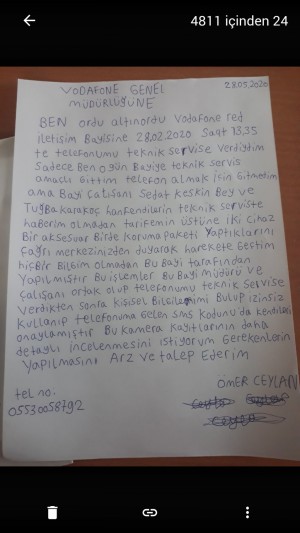 4811 içinden 24
VODAFONE GENEL
MÜDÜRLÜĞÜNE
28.05.2020
BEN ordu altınordu Vodafone red
iletişim Bayisine 28.02.2020 Saat 13.35
te telefonumu teknik servise verdiğim
Sadece Ben o gün Bayiye teknik servis
amaclı Gittim telefon almak için Gitmedim
ama Bayi Çalışanı Sedat keskin Bey ve
Tuğba karakoç hanfendilerin teknik serviste
haberim olmadan tarifemin üstüne iki cihaz
Bir aksesuar Birde koruma Paketi Yaptıklarını
çağrı merkezinizden duyarak harekete Geçtim
hiçbir Bilgim olmadan Bu Bayi tarafından
Yapılmıştır Bu işlemler Bu Bayi müdürü ve
çalışanı ortak olup telefonumu teknik Servise
Verdikten Sonra kişisel Bilgilerimi Bulup izinsiz
kullanıp telefonuma Gelen sms Kodunu'da kendileri
onaylamıştır Bu kamera Kayıtlarının daha
detaylı incelenmesini istiyorum Gerekenlerin
Yapılmasını Arz ve talep Ederim
ÖMER CEYLAN
tel no:
05530058792